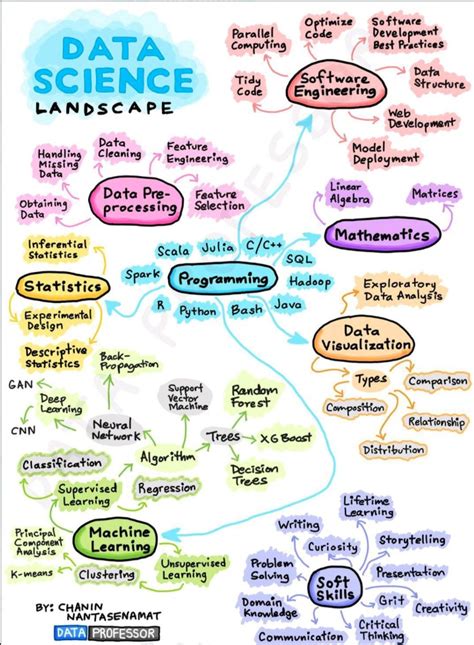 DATA
SCIENCE
LANDSCAPE
Parallel
Computing
Optimize
Code
Software
Development
Best Practices
Tidy
Code
Software
Engineering
Data
Structure
Web
Development
Model
Deployment
Handling
Missing
Data
Data
Cleaning
Feature
Engineering
Obtaining
Data
Data Pre-
processing
Feature
Selection
Linear
Algebra
Matrices
Mathematics
Inferential
Statistics
Statistics
Experimental
Design
Descriptive
Statistics
Scala
Julia
C/C++
SQL
Spark
Programming
Hadoop
R
Python
Bash
Java
Exploratory
Data Analysis
Data
Visualization
Types
Comparison
Composition
Relationship
Distribution
Back-
Propagation
GAN
Deep
Learning
CNN
Neural
Network
Support
Vector
Machine
Random
Forest
Trees
XG Boost
Decision
Trees
Algorithm
Classification
Supervised
Learning
Regression
Principal
Component
Analysis
Machine
Learning
K-means
Clustering
Unsupervised
Learning
Lifetime
Learning
Writing
Curiosity
Storytelling
Problem
Solving
Soft
Skills
Presentation
Domain
Knowledge
Grit
Creativity
Communication
Critical
Thinking
BY: CHANIN
NANTASENAMAT
DATA PROFESSOR